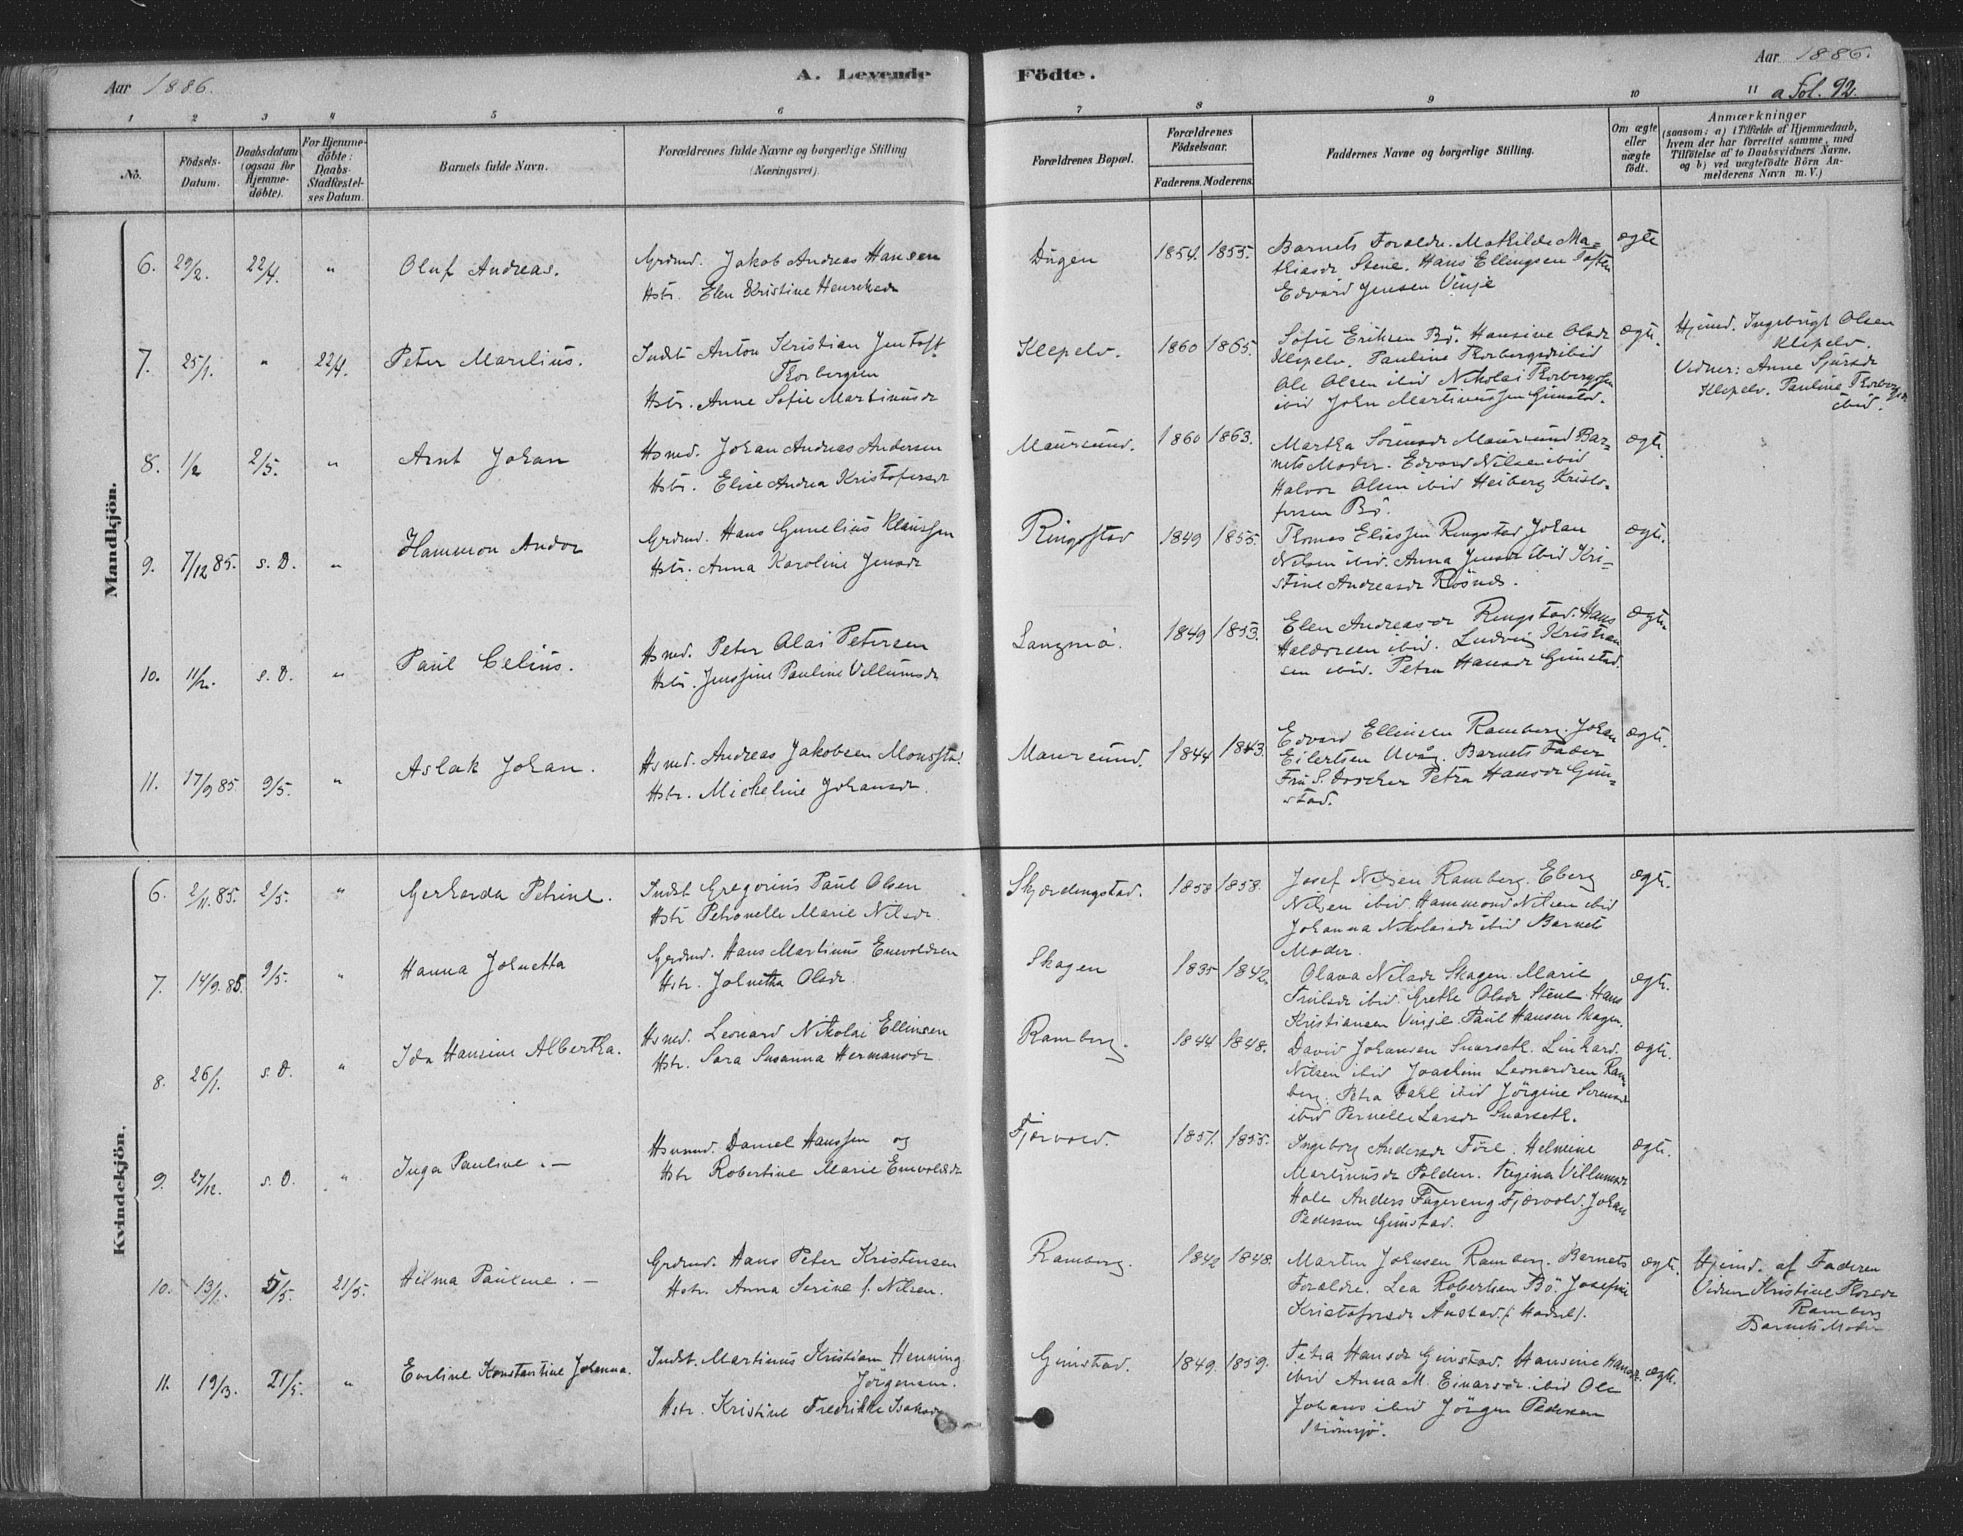 Aar 1886.
A. Levende
Födte.
Aar 1886.
a Fol. 92.
1 2 3 4 5 6 7 8 9 10 11
No.
Födsels-Datum.
Daabsdatum (ogsaa for Hjemme-döbte).
For Hjemme-döbte: Daabs-Stadfæstel-ses Datum.
Barnets fulde Navn.
Forældrenes fulde Navne og borgerlige Stilling (Næringsvei).
Forældrenes Bopæl.
Forældrenes Födselsaar.
Faderens. Moderens.
Faddernes Navne og borgerlige Stilling.
Om ægte eller uægte födt.
Anmærkninger
(saasom: a) i Tilfælde af Hjemmedaab, hvem der har forrettet samme, med Tilföielse af to Daabsvidners Navne, og b) ved uægtefödte Börn Anmelderens Navn m. V.)
Mandkjön.
6. 29/2. 22/4. " Oluf Andreas.
Grdmd. Jakob Andreas Hansen
Hstr. Elen Kristine Henriksdr
Dügen 1854. 1855.
Barnets Foraldre. Mathilde Ma-
thiasdr Stene. Hans Ellingsen Toften
Edvard Jensen Vinje
ægte
7. 25/1. " 22/4. Peter Marelius.
Indst Anton Kristian Jentoft
Thorbergsen
Hstr. Anne Sofie Martinusdr
Klepelv. 1860 1865.
Sofie Eriksen Bö. Hansine Olsdr
Klepelv. Pauline Thorbergsdr ibid
Ole Olsen ibid Nikolai Thorbergsen
ibid John Martinussen Gimstad.
ægte.
Hjmd. Ingebrigt Olsen
Klepelv.
Vidner: Anne Sjursdr
Klepelv. Pauline Thorbergsdr
ibid.
8. 1/2 2/5. " Arnt Johan
Hsmd. Johan Andreas Andersen
Hstr. Elise Andrea Kristofersdr
Maursund. 1860 1863.
Martha Sörensdr Maursund Bar-
nets Moder. Edvard Nilsen ibid
Halvor Olsen ibid Heiberg Kristo-
fersen Bö.
ægte.
9. 7/12 85. s. D. " Hammon Andor
Grdmd. Hans Gunelius Klaussen
Hstr. Anna Karoline Jensdr
Ringstad 1849 1855.
Thomas Eliassen Ringstad Johan
Nilsen ibid. Anna Jensdr ibid Kri-
stine Andreasdr Rösnes.
ægte.
10. 11/2. s. D. " Paul Celius.
Hsmd. Peter Olai Petersen
Hstr. Jensine Pauline Villumsdr
Langmo. 1849 1853.
Elen Andreasdr Ringstad. Hans
Haldorsen ibid. Ludvig Kristian
sen ibid. Petra Hansdr Gimstad
ægte
11. 17/9 85. 9/5. " Aslak Johan.
Hsmd. Andreas Jakobsen Monsstad.
Hstr. Micheline Johansdr.
Maursund. 1844 1843.
Edvard Ellinsen Ramberg. Johan
Eilertsen Uvåg. Barnets Fader
Fru S. Drecher Petra Hansdr Gim-
stad.
ægte.
Kvindekjön.
6. 2/11. 85. 2/5. " Gerharda Petrine.
Indst Gregorius Paul Olsen
Hstr Petronelle Marie Nilsdr.
Skjærdingstad. 1858 1858.
Josef Nilsen Ramberg. Eberg
Nilsen ibid. Hammond Nilsen ibid
Johanna Nikolaisdr ibid Barnets
Moder.
ægte.
7. 14/9. 85. 9/5. " Hanna Johnetta
Gerdmd. Hans Martinus Envoldsen
Hstr. Johnetha Olsdr.
Skagen 1835 1842.
Olava Nilsdr Skagen. Marie
Trulsdr ibid. Grethe Olsdr Stene. Hans
Kristiansen Vinje. Paul Hansen Skagen.
ægte.
8. 26/1. s. D. " Ida Hansine Albertha.
Hsmd. Leonard Nikolai Ellinsen
Hstr. Sara Susanna Hermansdr
Ramberg. 1844. 1848.
David Johansen Snarseth. Linhard
Nilsen ibid Joachim Leonardsen Ram-
berg. Petra Dahl ibid Jörgine Sörensdr
ibid Pernelle Larsdr Snarseth.
ægte.
9. 27/12. s. D. " Inga Pauline. —
Hsmmd. Daniel Hanssen og
Hstr Robertine Marie Envoldsdr
Fjærvold. 1851. 1855.
Ingeborg Andersdr Före. Helmine
Martinusdr Polden. Regina Villumsdr
Hole Anders Fagereng Fjærvold. Johan
Pedersen Gimstad.
ægte.
10. 13/1. 5/5. 21/5. Hilma Pauline. —
Grdmd. Hans Peter Kristensen
Hstr. Anna Serine f. Nilsen.
Ramberg. 1842 1848.
Martin Johnsen Ramberg. Barnets
Foraldre. Lea Robertsen Bö Josefine
Kristofersdr Ånstad (Hadsel).
ægte.
Hjemd. af Faderen
Vidner Kristine Thorsdr
Ramberg
Barnets Moder
11. 19/3. 21/5. " Eveline Konstantine Johanna.
Indst. Martinus Kristian Henning
Jörgensen.
Hstr. Kristine Fredrikke Isaksdr
Gimstad. 1849. 1859.
Petra Hansdr Gimstad. Hansine Hansdr
ibid Anna M. Einarsdr. ibid Ole
Johans ibid Jörgen Pedersen
Strömsjö.
ægte.